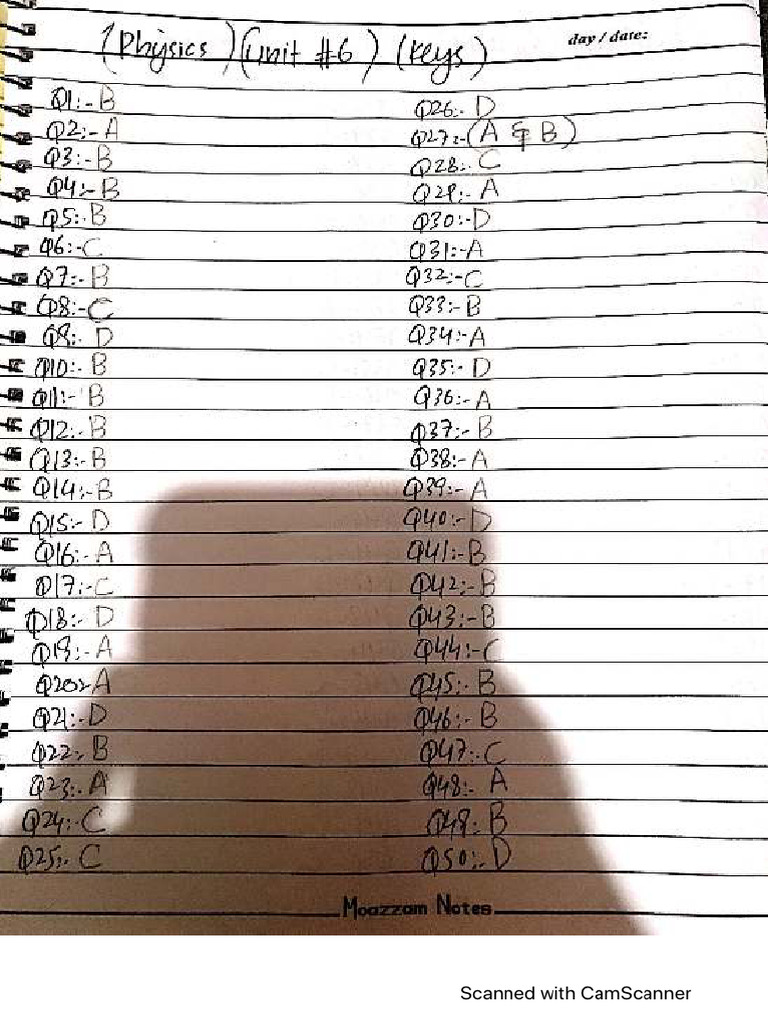 (Physics) (Unit #6) (Keys)
day / date:
Q1:- B
Q2:- A
Q3:- B
Q4:- B
Q5:- B
Q6:- C
Q7:- B
Q8:- C
Q9:- D
Q10:- B
Q11:- B
Q12:- B
Q13:- B
Q14:- B
Q15:- D
Q16:- A
Q17:- C
Q18:- D
Q19:- A
Q20:- A
Q21:- D
Q22:- B
Q23:- A
Q24:- C
Q25:- C
Q26:- D
Q27:- (A & B)
Q28:- C
Q29:- A
Q30:- D
Q31:- A
Q32:- C
Q33:- B
Q34:- A
Q35:- D
Q36:- A
Q37:- B
Q38:- A
Q39:- A
Q40:- D
Q41:- B
Q42:- B
Q43:- B
Q44:- C
Q45:- B
Q46:- B
Q47:- C
Q48:- A
Q49:- B
Q50:- D
Moazzam Notes
Scanned with CamScanner